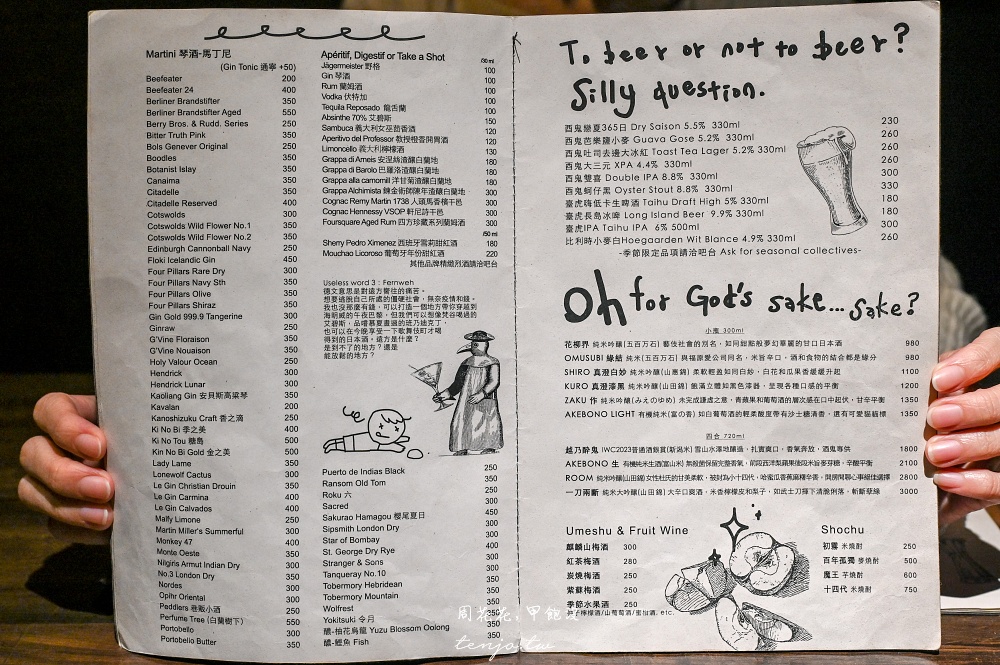 Martini 琴酒-馬丁尼
(Gin Tonic 通寧 +50)
Beefeater 200
Beefeater 24 400
Berliner Brandstifter 350
Berliner Brandstifter Aged 550
Berry Bros. & Rudd. Series 250
Bitter Truth Pink 350
Bols Genever Original 250
Boodles 350
Botanist Islay 350
Canaima 350
Citadelle 350
Citadelle Reserved 400
Cotswolds 300
Cotswolds Wild Flower No.1 350
Cotswolds Wild Flower No.2 350
Edinburgh Cannonball Navy 250
Floki Icelandic Gin 450
Four Pillars Rare Dry 300
Four Pillars Navy Sth 350
Four Pillars Olive 350
Four Pillars Shiraz 350
Gin Gold 999.9 Tangerine 300
Ginraw 250
G'Vine Floraison 350
G'Vine Nouaison 350
Holy Valour Ocean 250
Hendrick 300
Hendrick Lunar 300
Kaoliang Gin 安貝斯高粱琴 350
Kavalan 200
Kanoshizuku Craft 香之滴 250
Ki No Bi 季之美 400
Ki No Tou 糖島 500
Kin No Bi Gold 金之美 500
Lady Lame 350
Lonewolf Cactus 300
Le Gin Christian Drouin 350
Le Gin Carmina 400
Le Gin Calvados 400
Malfy Limone 250
Martin Miller's Summerful 300
Monkey 47 400
Monte Oeste 350
Nilgiris Armut Indian Dry 350
No.3 London Dry 350
Nordes 300
Opihr Oriental 300
Peddlers 巷販小酒 250
Perfume Tree (白蘭樹下) 550
Portobello 300
Portobello Butter 350
Apéritif, Digestif or Take a Shot
/30 ml
Jägermeister 野格 100
Gin 琴酒 100
Rum 蘭姆酒 100
Vodka 伏特加 100
Tequila Reposado 龍舌蘭 100
Absinthe 70% 艾碧斯 150
Sambuca 義大利女巫茴香酒 120
Aperitivo del Professor 教授橙香開胃酒 120
Limoncello 義大利檸檬酒 130
Grappa di Ameis 安涅絲渣釀白蘭地 180
Grappa di Barolo 巴羅洛渣釀白蘭地 180
Grappa alla camomill 洋甘菊渣釀白蘭地 180
Grappa Alchimista 鍊金術師陳年渣釀白蘭地 300
Cognac Remy Martin 1738 人頭馬香檳干邑 300
Cognac Hennessy VSOP 軒尼詩干邑 300
Foursquare Aged Rum 四方珍藏系列蘭姆酒 300
/50 ml
Sherry Pedro Ximenez 西班牙雪莉甜紅酒 180
Mouchao Licoroso 葡萄牙年份甜紅酒 220
其他品牌精緻烈酒請洽吧台
Useless word 3 : Fernweh
德文意思是對遠方嚮往的痛苦。
想要逃脫自己所處的僵硬社會，無奈疫情和錢。
我也沒那麼有錢，可以打造一個地方帶你穿越到
海明威的午夜巴黎，但我們可以想像梵谷喝過的
艾碧斯，品嚐慕夏畫過的班乃迪克丁，
也可以在今晚享受一下歌舞伎町才喝
得到的日本酒。遠方是什麼？
是到不了的地方？還是
能放鬆的地方？
Puerto de Indias Black 250
Ransom Old Tom 350
Roku 六 250
Sacred 300
Sakurao Hamagou 櫻尾夏日 450
Sipsmith London Dry 300
Star of Bombay 300
St. George Dry Rye 400
Stranger & Sons 300
Tanqueray No.10 300
Tobermory Hebridean 350
Tobermory Mountain 350
Wolfrest 350
Yokitsuki 令月
釀-柚花烏龍 Yuzu Blossom Oolong 350
釀-鯉魚 Fish 350
To beer or not to beer?
Silly question.
酉鬼戀夏365日 Dry Saison 5.5% 330ml 230
酉鬼芭樂鹽小麥 Guava Gose 5.2% 330ml 260
酉鬼吐司去邊大冰紅 Toast Tea Lager 5.2% 330ml 260
酉鬼大三元 XPA 4.4% 330ml 260
酉鬼雙喜 Double IPA 8.8% 330ml 300
酉鬼蚵仔黑 Oyster Stout 8.8% 330ml 330
臺虎嗨低卡生啤酒 Taihu Draft High 5% 330ml 180
臺虎長島冰啤 Long Island Beer 9.9% 330ml 180
臺虎IPA Taihu IPA 6% 500ml 300
比利時小麥白Hoegaarden Wit Blance 4.9% 330ml 260
-季節限定品項請洽吧台 Ask for seasonal collectives-
Oh for God's sake... Sake?
小瓶 300ml
花椰界 純米吟釀(五百万石) 藝伎社會的別名，如同甜點般夢幻華麗的甘口日本酒 980
OMUSUBI 緣結 純米(五百万石) 與福原愛公司同名，米旨辛口，酒和食物的結合都是緣分 980
SHIRO 真澄白妙 純米吟釀(山惠錦) 柔軟輕盈如同白紗，白花和瓜果香緩緩升起 1100
KURO 真澄漆黑 純米吟釀(山田錦) 飽滿立體如黑色漆器，呈現各種口感的平衡 1200
ZAKU 作 純米吟釀(みえのゆめ) 未完成謙虛之意，青蘋果和葡萄酒的層次感在口中起伏，甘辛平衡 1350
AKEBONO LIGHT 有機純米(富の香) 如白葡萄酒的輕柔酸度帶有沙士糖清香，還有可愛貓貓標 1350
四合 720ml
越乃酔鬼 IWC2023普通酒銀賞(新潟米) 雪山水澤地釀造，扎實爽口，香氣奔放，酒鬼專供 1800
AKEBONO 生 有機純米生酒(富山米) 無殺菌保留完整香氣，前段西洋梨蘋果後段米旨麥芽糖，辛酸平衡 2100
ROOM 純米大吟釀(山田錦) 女性杜氏的甘美柔軟，被封為小十四代，哈蜜瓜香蕉麻糬辛香，開房間聊心事絕佳選擇 2800
一刀兩斷 純米大吟釀(山田錦) 大辛口爽酒，米香檸檬皮和梨子，如武士刀揮下清脆俐落，斬斷孽緣 3000
Umeshu & Fruit Wine
麒麟山梅酒 300
紅茶梅酒 280
炭燒梅酒 250
紫蘇梅酒 250
季節水果酒 250
柚子檸檬酒/山葡萄酒/蜜柑酒. etc.
Shochu
初雪 米燒酎 250
百年孤獨 麥燒酎 500
魔王 芋燒酎 600
十四代 米燒酎 750
周花花,甲飽沒
tenjo.tw